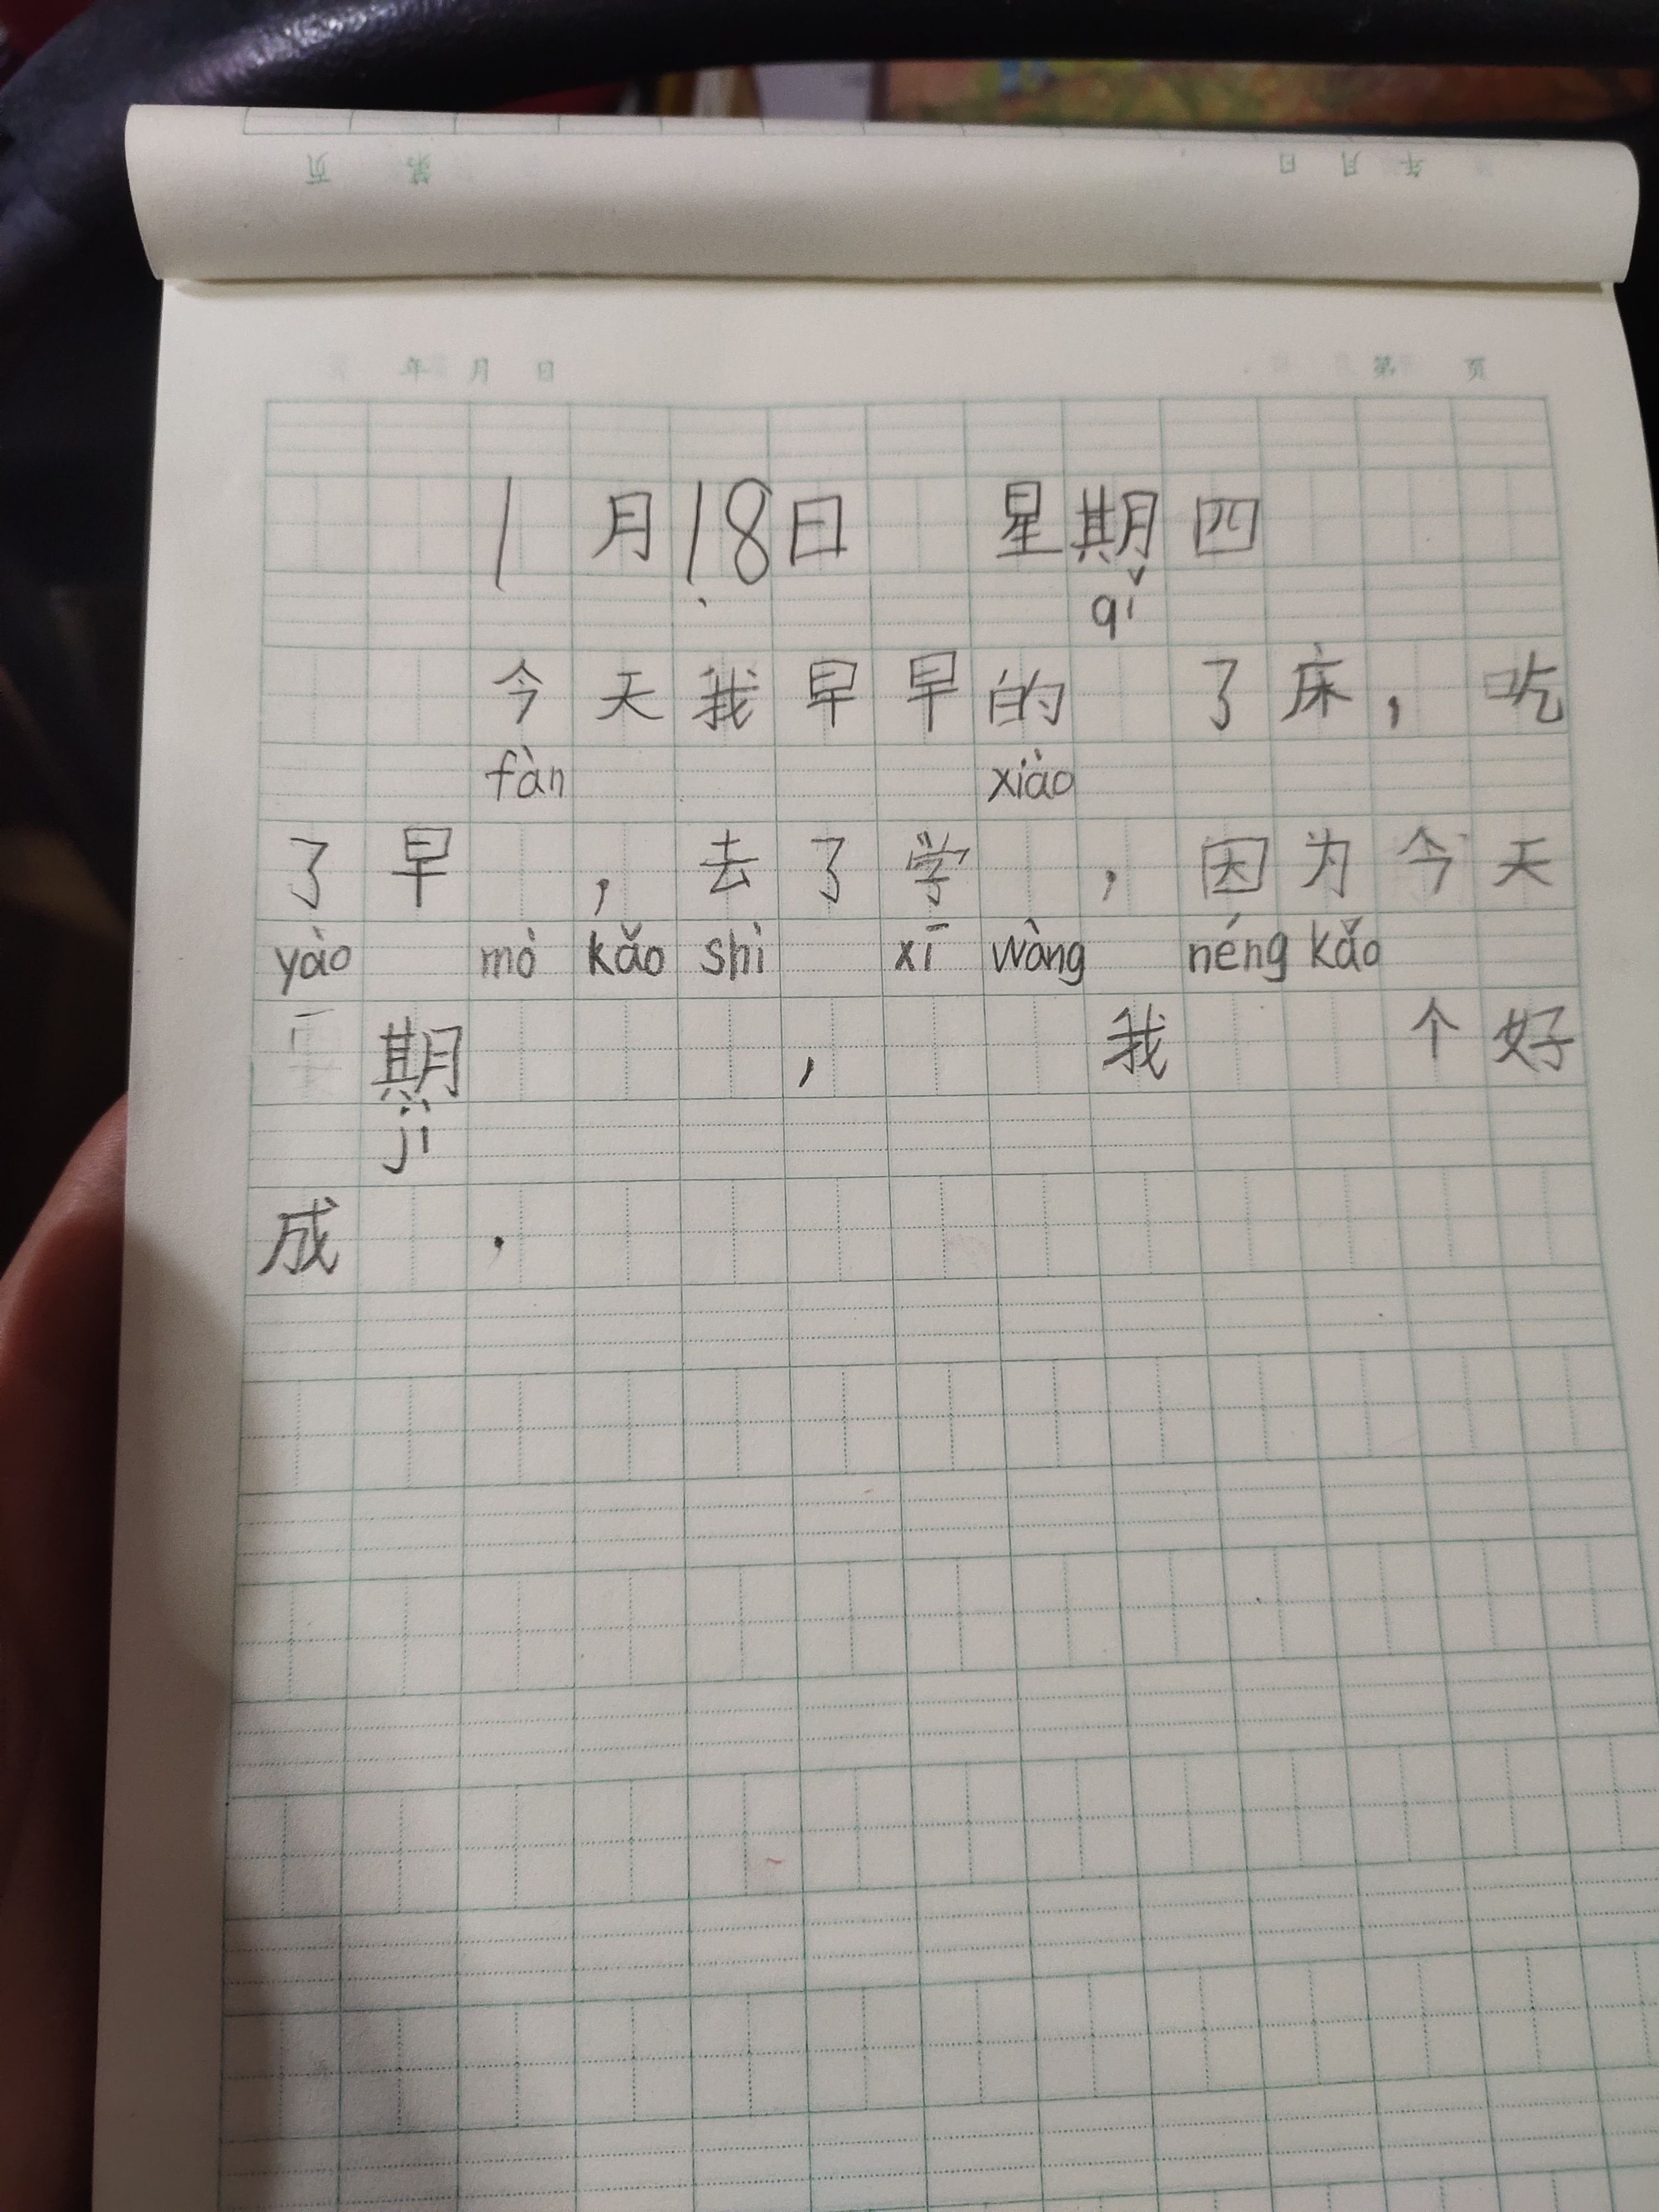 页 第 日 月 年
年 月 日 第 页
1月18日 星期四
qǐ
今天我早早的 了床，吃
fàn xiào
了早 ，去了学 ，因为今天
yào mò kǎo shì xī wàng néng kǎo
期 ， 我 个好
jì
成 .